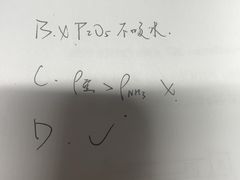 B. × P₂O₅ 不吸水.
C. ρ空 > ρNH₃ ×.
D. ✓